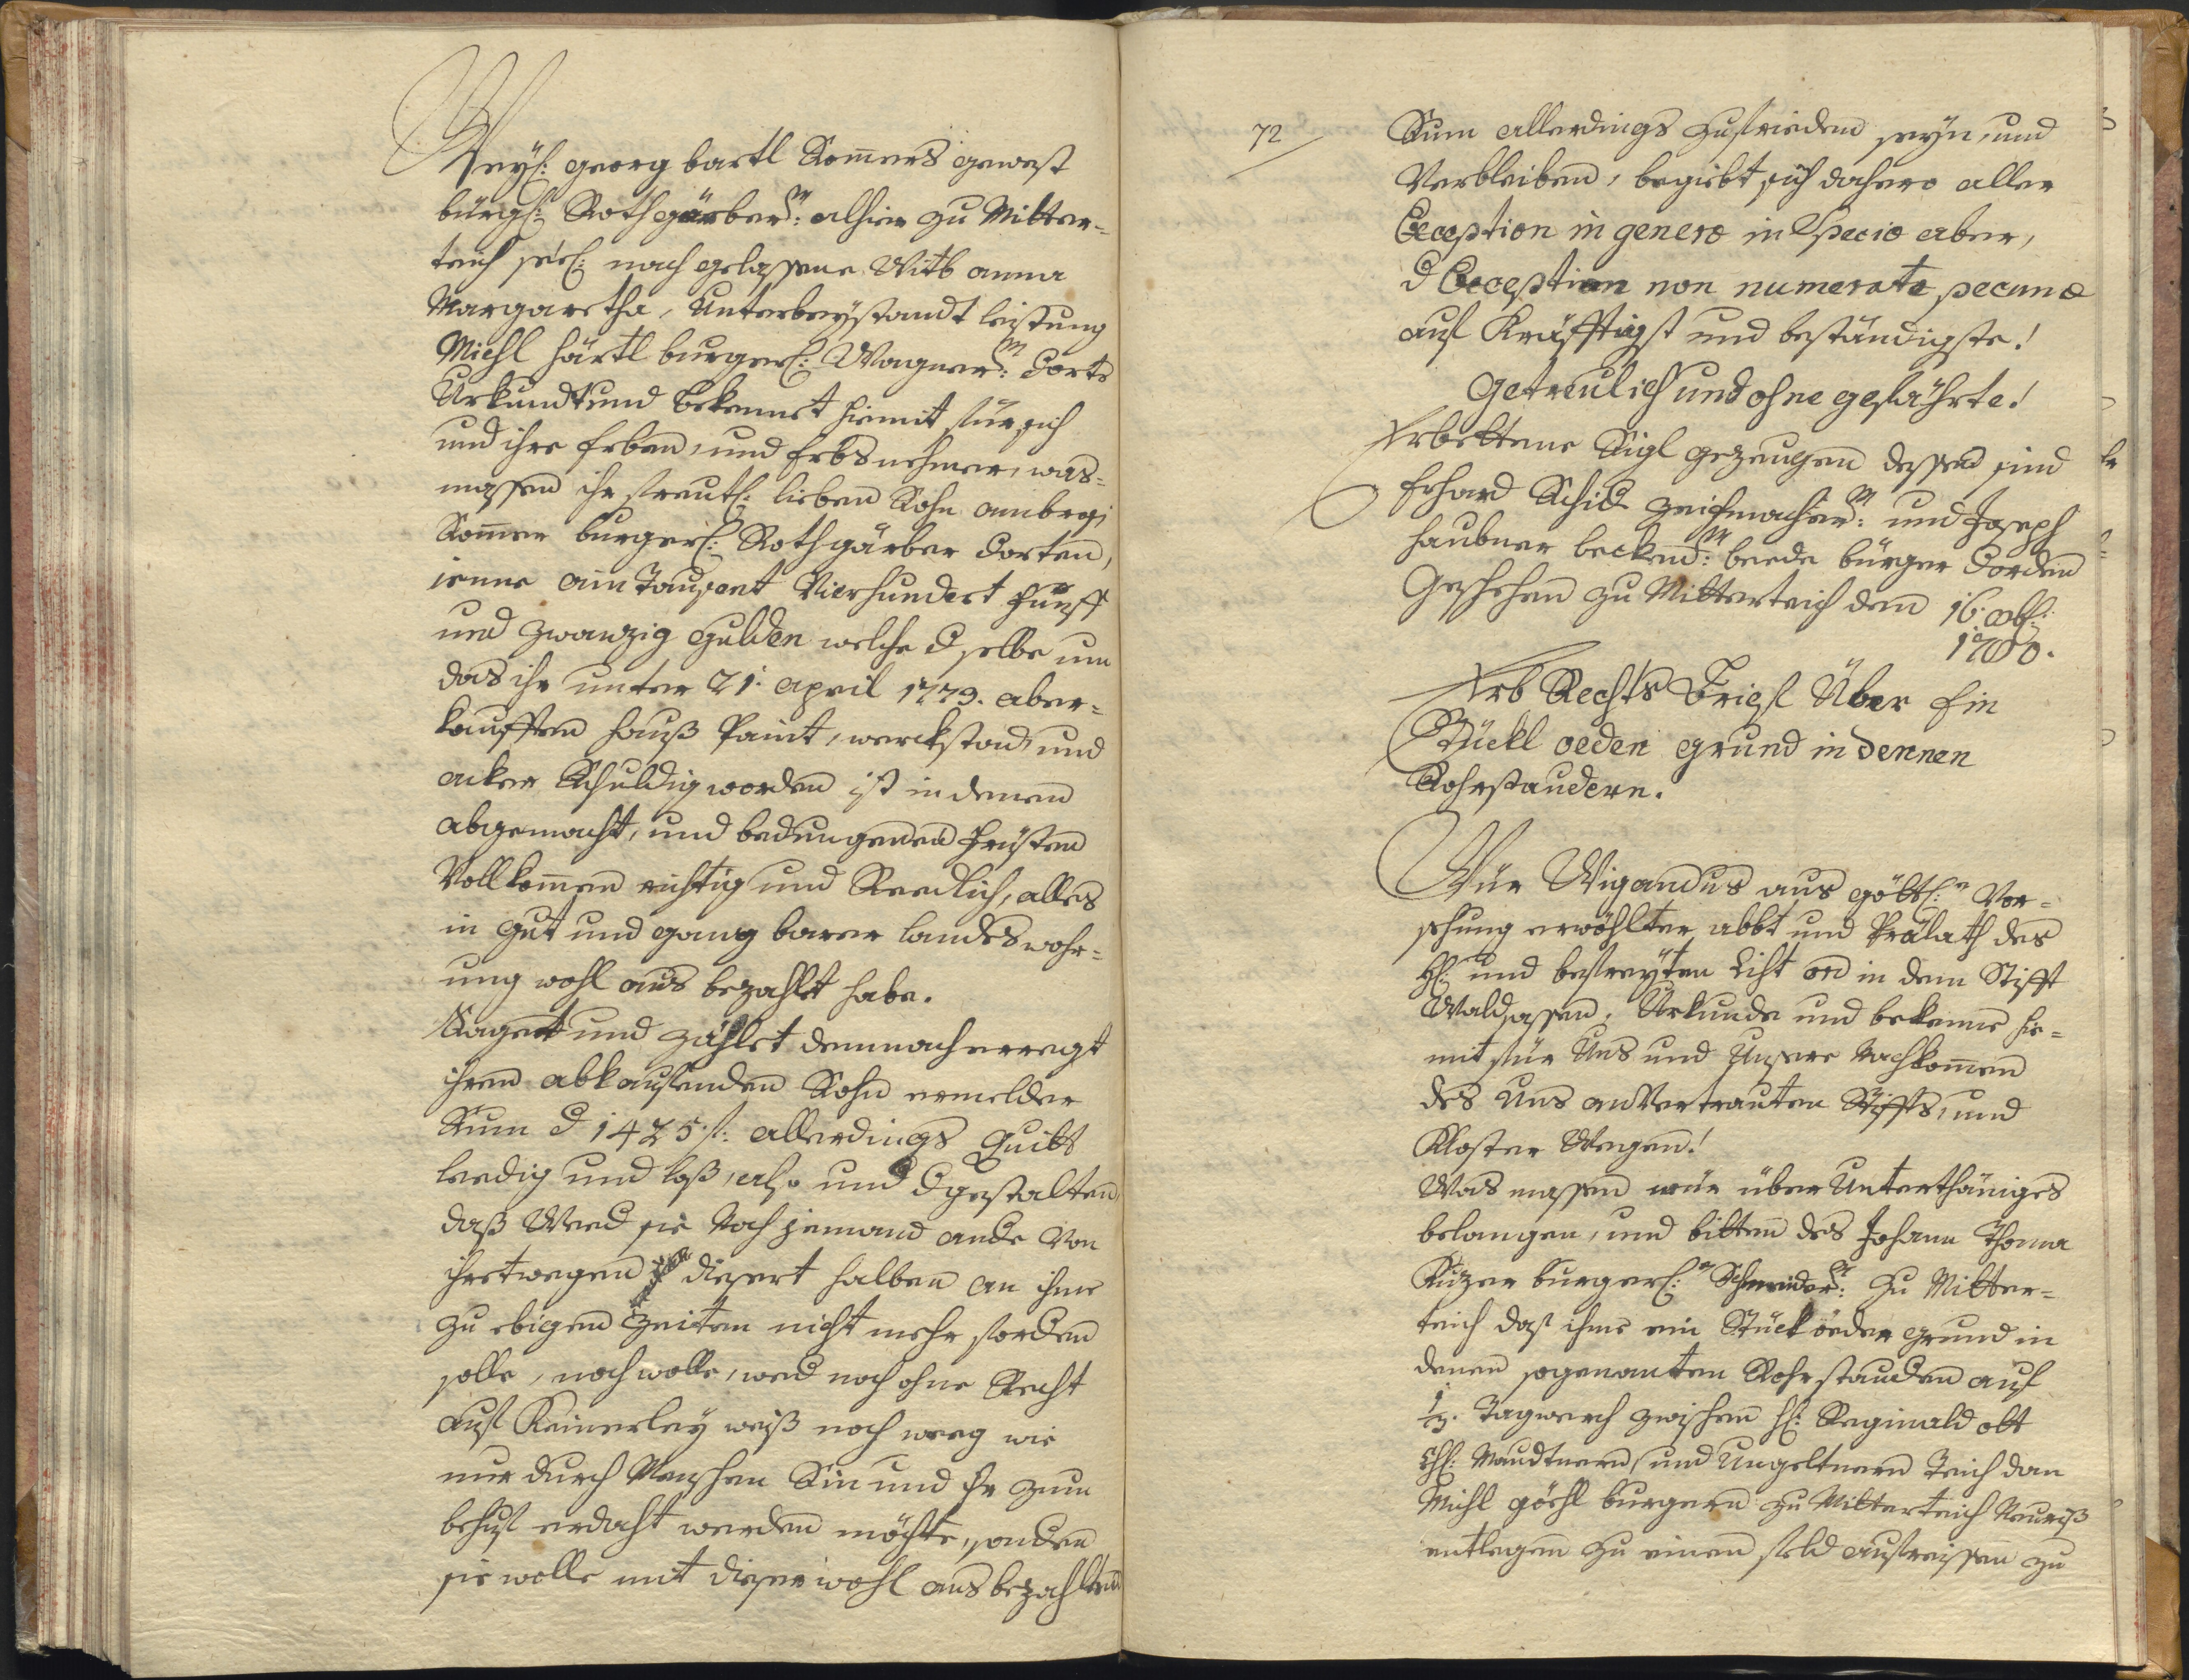 Weyl: georg bartl Somers gewest
bürgl: Rothgärberm: alhier zu Mitter=
teich seel: nach gelassene Witb anna
Margaretha, Unterbeystandt leistung
Michl härtl burgerl: Wagnerm: dorts
Urkundt und bekennet hiemit für sich
und ihre Erben, und Erbsnehmer, was=
massen ihr freutl: lieben Sohn ambrosi
Somer burgerl: Rothgärber dorten,
jenne ain Tausent Vierhundert fünff
und zwanzig Gulden welche dselbe um
das ihr unter 21. april 1779. aber=
kaufften hauß Paint, werckstad und
acker Schuldig worden ist in denen
abgemacht, und bedungenen fristen
Vollkomen richtig und Reedlich, alles
in gut und gangbarer landeswehr=
ung wohl aus bezahlt habe.
Saget und zählet demnach erregt
ihren abkaufenden Sohn ermelder
Sum d 1425 f: allerdings Quitt
leedig und loß, also und dgestalten,
daß Wed sie Noch jemand ande von
ihretwegen diesert halben an ihme
zu ebigen Zeiten nicht mehr forden
solle, noch wolle, wed noch ohne Recht
auf Keinerley weiß noch weeg wie
nur durch Menschen Sin und Er zum
behuf erdacht werden möchte, sonden
sie wolle mit dieser wohl ausbezahlten
72
Sum allerdings zufrieden seyn, und
Verbleiben, begiebt sich dahero aller
Exception in genere in Specie aber,
d Exception non numerate pecuniæ
auf Kräfftigst und beständigste!
Getreulich und ohne gefährte!
Erbettene Sigl gezeugen dessen sind
Erhard Schid zeichmacherm: und Joseph
haubner beckenm: beede bürger dorden
Geschehen zu Mitterteich den 16. 
1780.
Erb Rechts Brief Über Ein
Stückl oeden grund in dennen
Rohrstaudern.
Wür Wigandus aus göttl:n Vor=
sehung erwöhlter abbt und Prälath des
hl: und befreyten List ord in dem Stifft
Waldsassen, Urkunde und bekenne hie=
mit für Uns und Unsere Nachkomen
des Uns anvertrauten Stiffts, und
Kloster Wegen!
Was massen wür über Unterthäniges
belangen, und bitten des Johann Thoma
burgerl:n Schneiderm: zu Mitter=
teich das ihme ein Stück öeder grund in
denen sogenanten Rohrstauden auf
1/2. Tagwerch zwischen H: Reginald ott
Mauttnern, und Ungeltnern Teich dan
Michl göhl burgern zu Mitterteich Neuriß
entlegen zu einen feld ausreissen zu